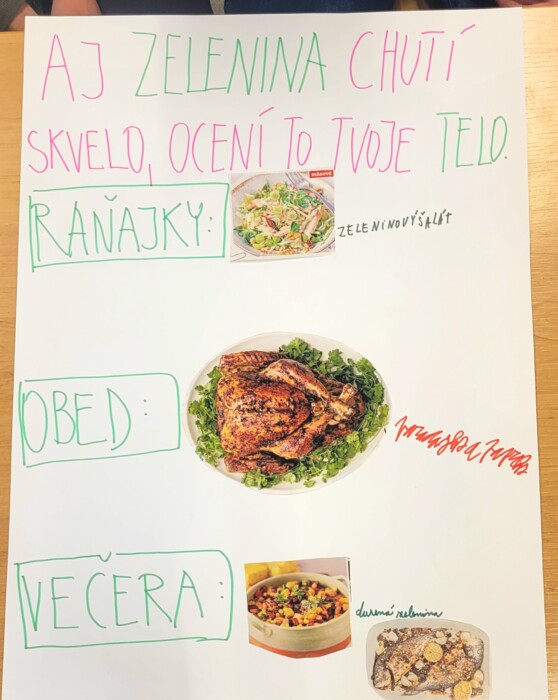 AJ ZELENINA CHUTÍ
SKVELO, OCENÍ TO TVOJE TELO.
RAŇAJKY:
ZELENINOVÝ ŠALÁT
OBED:
VEČERA:
dusená zelenina